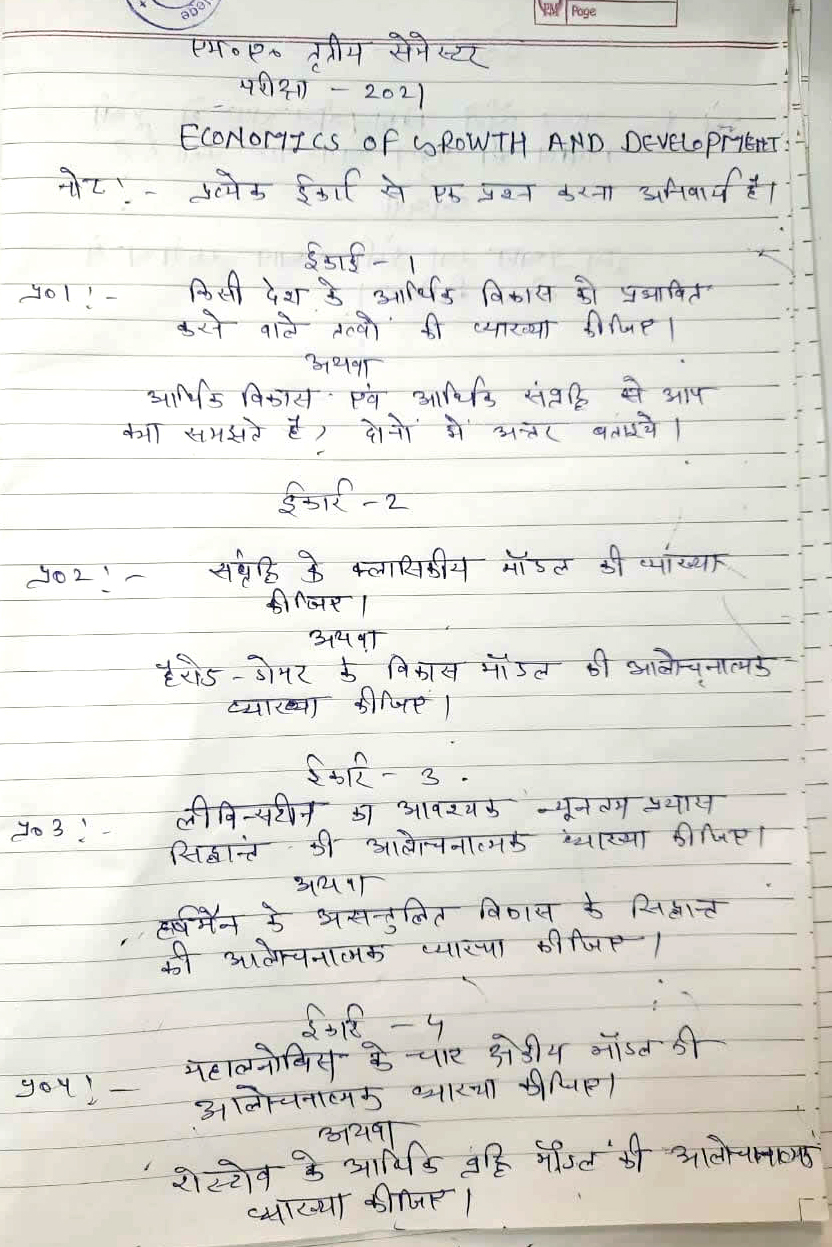 Page
एम०ए० तृतीय सेमेस्टर
परीक्षा - 2021
ECONOMICS OF GROWTH AND DEVELOPMENT:-
नोट:- प्रत्येक ईकाई से एक प्रश्न करना अनिवार्य है।
ईकाई - 1
प्र01:- किसी देश के आर्थिक विकास को प्रभावित
करने वाले तत्वों की व्याख्या कीजिए।
अथवा
आर्थिक विकास एवं आर्थिक संवृद्धि से आप
क्या समझते है, दोनों में अन्तर बताइये।
ईकाई - 2
प्र02:- संवृद्धि के क्लासिकीय मॉडल की व्याख्या
कीजिए।
अथवा
हैरोड - डोमर के विकास मॉडल की आलोचनात्मक
व्याख्या कीजिए।
ईकाई - 3
प्र03:- लीविन्सटीन का आवश्यक न्यूनतम प्रयास
सिद्धान्त की आलोचनात्मक व्याख्या कीजिए।
अथवा
हर्षमैन के असन्तुलित विकास के सिद्धान्त
की आलोचनात्मक व्याख्या कीजिए।
ईकाई - 4
प्र04:- महालनोबिस के चार क्षेत्रीय मॉडल की
आलोचनात्मक व्याख्या कीजिए।
अथवा
रोस्टोव के आर्थिक वृद्धि मॉडल की आलोचनात्मक
व्याख्या कीजिए।